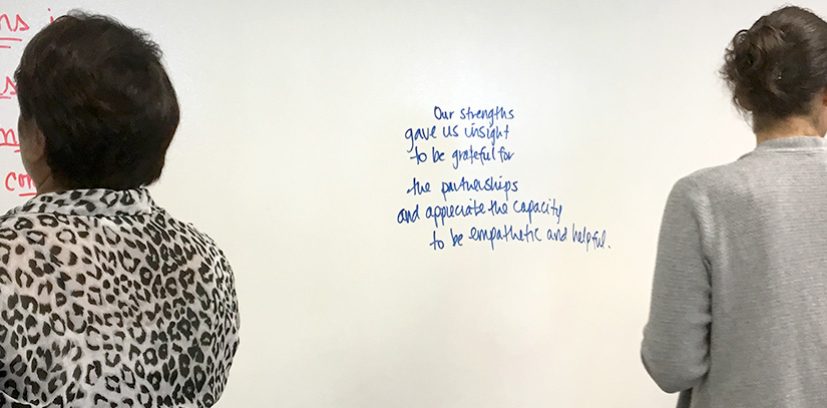 ns i
s
n
con
Our strengths
gave us insight
to be grateful for
the partnerships
and appreciate the capacity
to be empathetic and helpful.